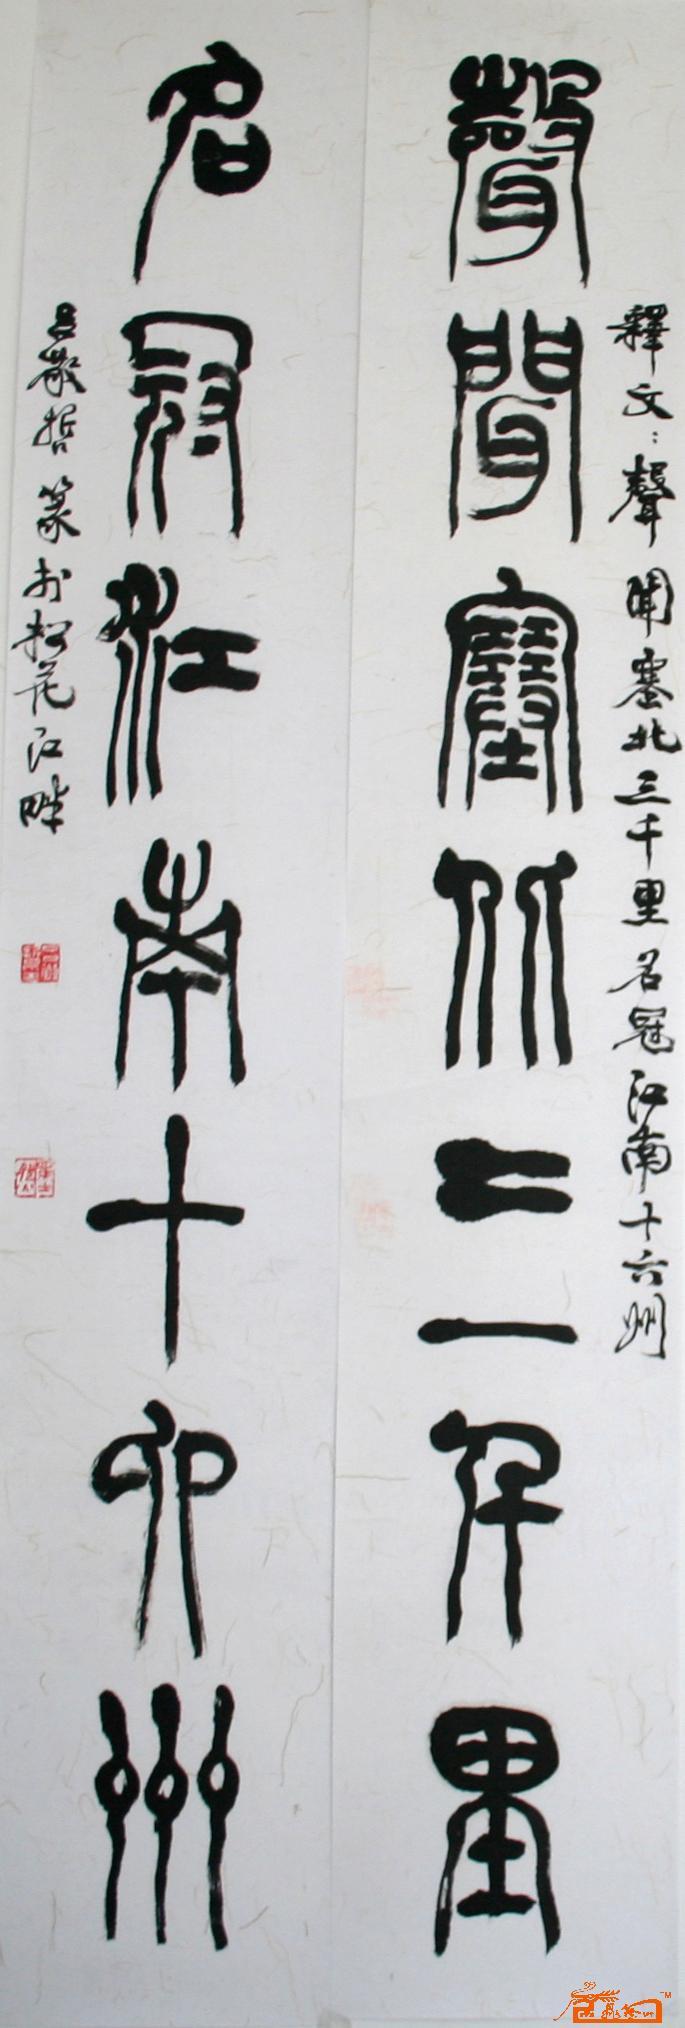 釋文：聲聞塞北三千里名冠江南十六州
聲聞塞北三千里
名冠江南十六州
呂敬哲篆於松花江畔